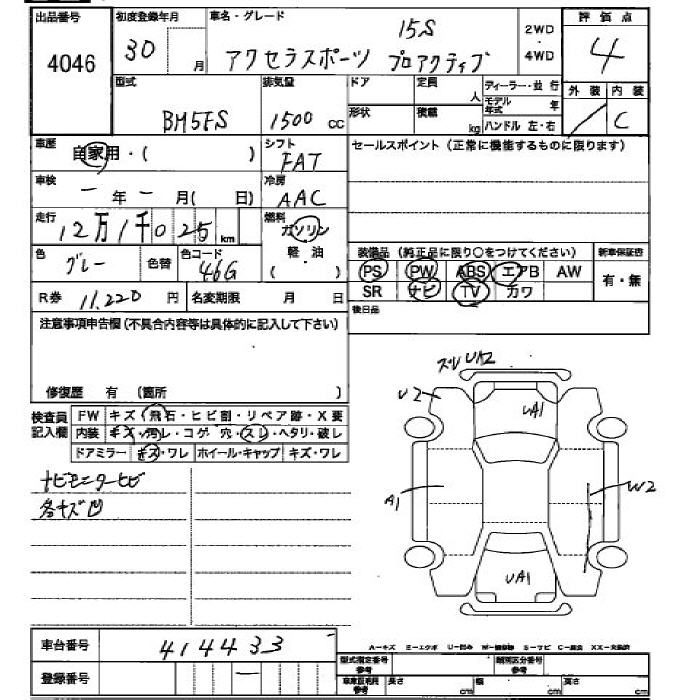 出品番号 初度登録年月 車名・グレード 15S 2WD・4WD 評価点
4046 30 月 アクセラスポーツ プロアクティブ 4
型式 排気量 ドア 定員 人 ディーラー・並行 外装 内装
BM5FS 1500 cc 形状 積載 kg モデル年式 年 ／ C
ハンドル 左・右
車歴 自家用・( ) シフト FAT セールスポイント (正常に機能するものに限ります)
車検 ー 年 ー 月( 日) 冷房 AAC
走行 12万1千025 km 燃料 ガソリン
軽・油
( )
色 グレー 色替 色コード 46G
装備品 (純正品に限り○をつけてください) 新車保証書
PS PW ABS エアB AW 有・無
SR ナビ TV カワ
R券 11,220 円 名変期限 月 日
後日品
注意事項申告欄(不具合内容等は具体的に記入して下さい)
修復歴 有 (箇所 )
検査員記入欄 FW キズ・飛石・ヒビ割・リペア跡・X要
内装 キズ・汚レ・コゲ・穴・スレ・ヘタリ・破レ
ドアミラー キズ・ワレ ホイール・キャップ キズ・ワレ
ナビモニターヒビ
各キズ凹
ズレ UA2
U2
UA1
A1
W2
UA1
車台番号 414433
登録番号 ー
A－キズ E－エクボ U－凹み W－補修跡 S－サビ C－腐食 XX－交換済
型式指定番号 参考 類別区分番号 参考
車庫証明用 参考 長さ cm 幅 cm 高さ cm